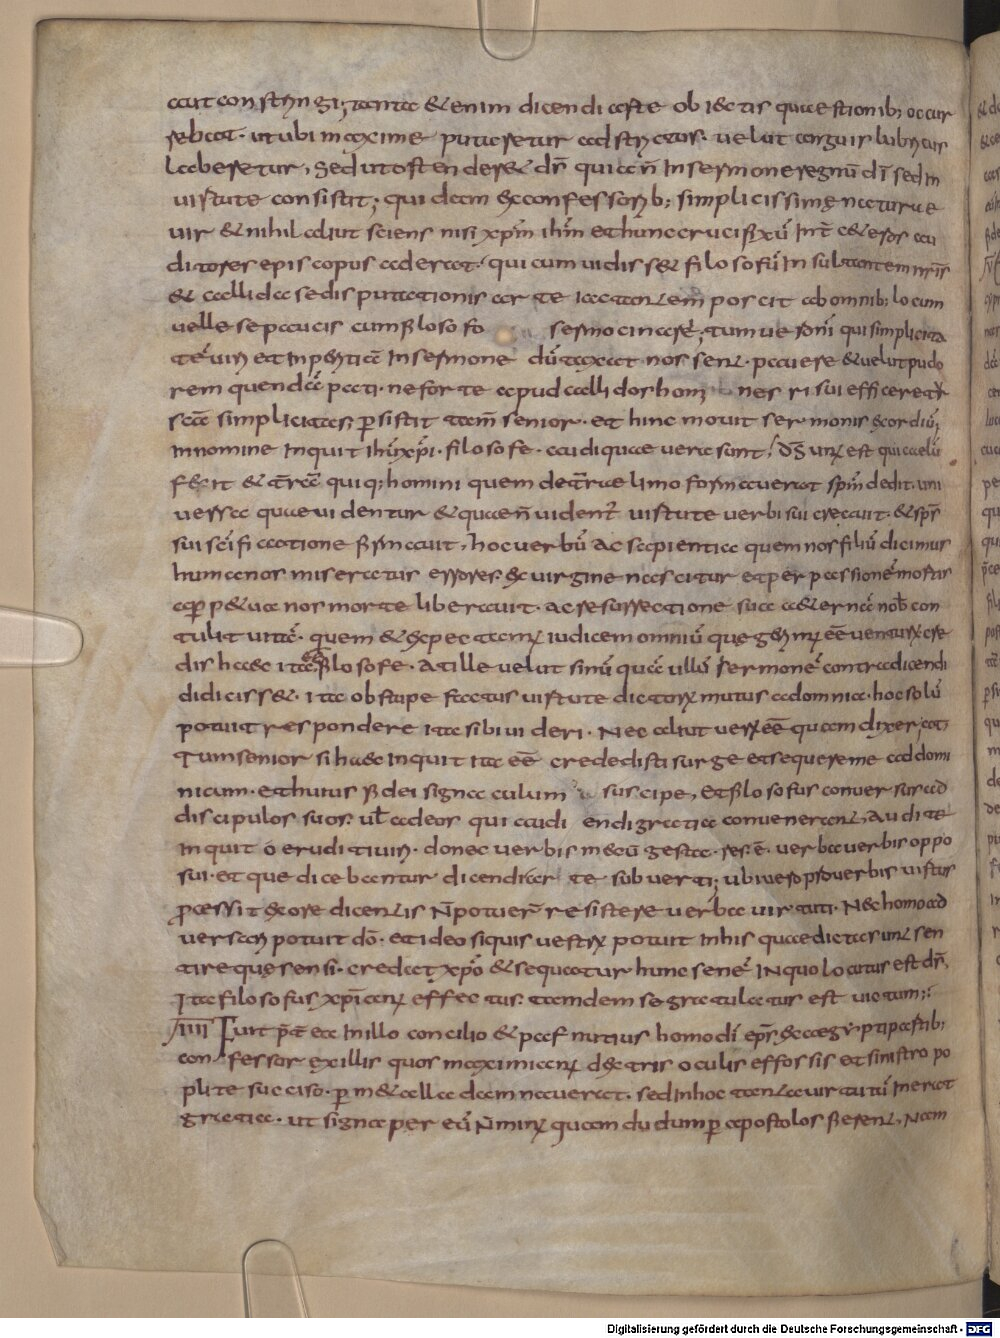 aut constringi; tanta & enim dicendi arte obiectis quaestionib; occur
rebat. ut ubi maxime putaretur adstrictus. uelut anguis lubricus
laberetur, Sed ut ostenderet dn̄s quia n̄ In sermone regnū dī sed In
uirtute consistit; quidam ex confessorib; simplicissimę naturae
uir & nihil aliut sciens nisi xp̄m ih̄m et hunc crucifixū Int̄ c&eros au
ditores episcopus aderat. qui cum uidiss& filosofū Insultantem nr̄is
& callida se disputationis arte iactantem poscit ab omnib; locum
uelle se paucis cum filosofo sermocinare; tum ueronr̄i qui simplicita
tē uiri et Inperitiā In sermone dū taxat nossent. pauere & uelut pudo
rem quendā pati. ne forte apud callidos homines risui efficeretur
scā simplicitas; persistit tam̄ senior. et hinc mouit sermonis exordiū;
Innomine Inquit ih̄u xp̄i. filosofe. audi quae uera sunt; Ds̄ unus est qui caelū
f&it & t̄rā quiq; homini quem de t̄rae limo formauerat sp̄m dedit. uni
uersa quae uidentur & quae n̄ uident̄ uirtute uerbi sui creauit. & sp̄s
sui sc̄ificatione firmauit, hoc uerbū ac sapientia quem nos filiū dicimus
humanos miseratus errores. ex uirgine nascitur et per passionē mortis
a perp&ua nos morte liberauit. ac resurrectione sua a&ernā nob̄ con
tulit uitā. quem & expectamus iudicem omniū que gerimus eē uenturū cre
dis haec ita filosofe. At ille uelut sinū quā ullū sermonē contradicendi
didiciss&. ita obstupefactus uirtute dictorū mutus ad omnia. hoc solū
potuit respondere ita sibi uideri. Nec aliut uerū eē quam dixerat;
Tum senior si haec Inquit ita eē credidisti surge et sequere me ad domi
nicum. et huius fidei signaculum suscipe, Et filosofus conuersus ad
discipulos suos. ul̄ ad eos qui audiendi gratia conuenerant, Audite
Inquit o eruditi uiri. donec uerbis mecū gesta. res ē. uerba uerbis oppo
sui. et que dicebantur dicendi arte subuerti; ubi uero pro uerbis uirtus
processit ex ore dicentis N̄ potuer̄ resistere uerba uirtuti. Nec homo ad
uersari potuit dō. et ideo siquis uestrū potuit In his quae dicta sunt sen
tire que sensi. credat xp̄o & sequatur hunc senē INquo locutus est ds̄,
Ita filosofus xp̄ianus effectus. tamdem se gratulatus est uictum;
IIII Fuit p̄t̄ ea In illo concilio & pafnutius homo dī ep̄s ex aegypti partib;
confessor ex illis quos maximianus dextris oculis effossis et sinistro po
plite succiso. per m&alla damnauerat. sed In hoc tanta uirtutū Inerat
gratia. ut signa per eū N̄ minus quam dudum per apostolos fierent, Nam
Digitalisierung gefördert durch die Deutsche Forschungsgemeinschaft - DFG